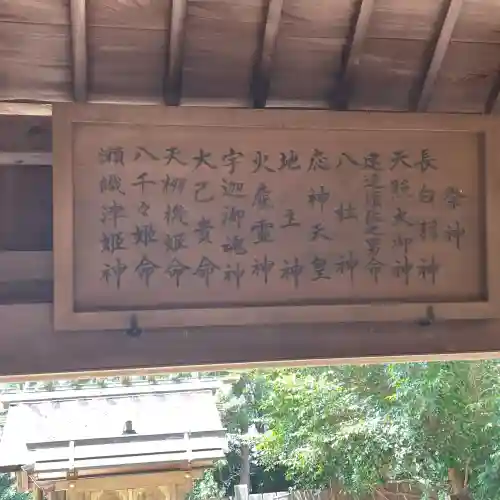 祭神
長白羽神
天照大御神
建速須佐之男命
八社神
応神天皇
地主神
火産霊神
宇迦御魂神
大己貴命
天棚機姫命
八千々姫命
瀬織津姫神